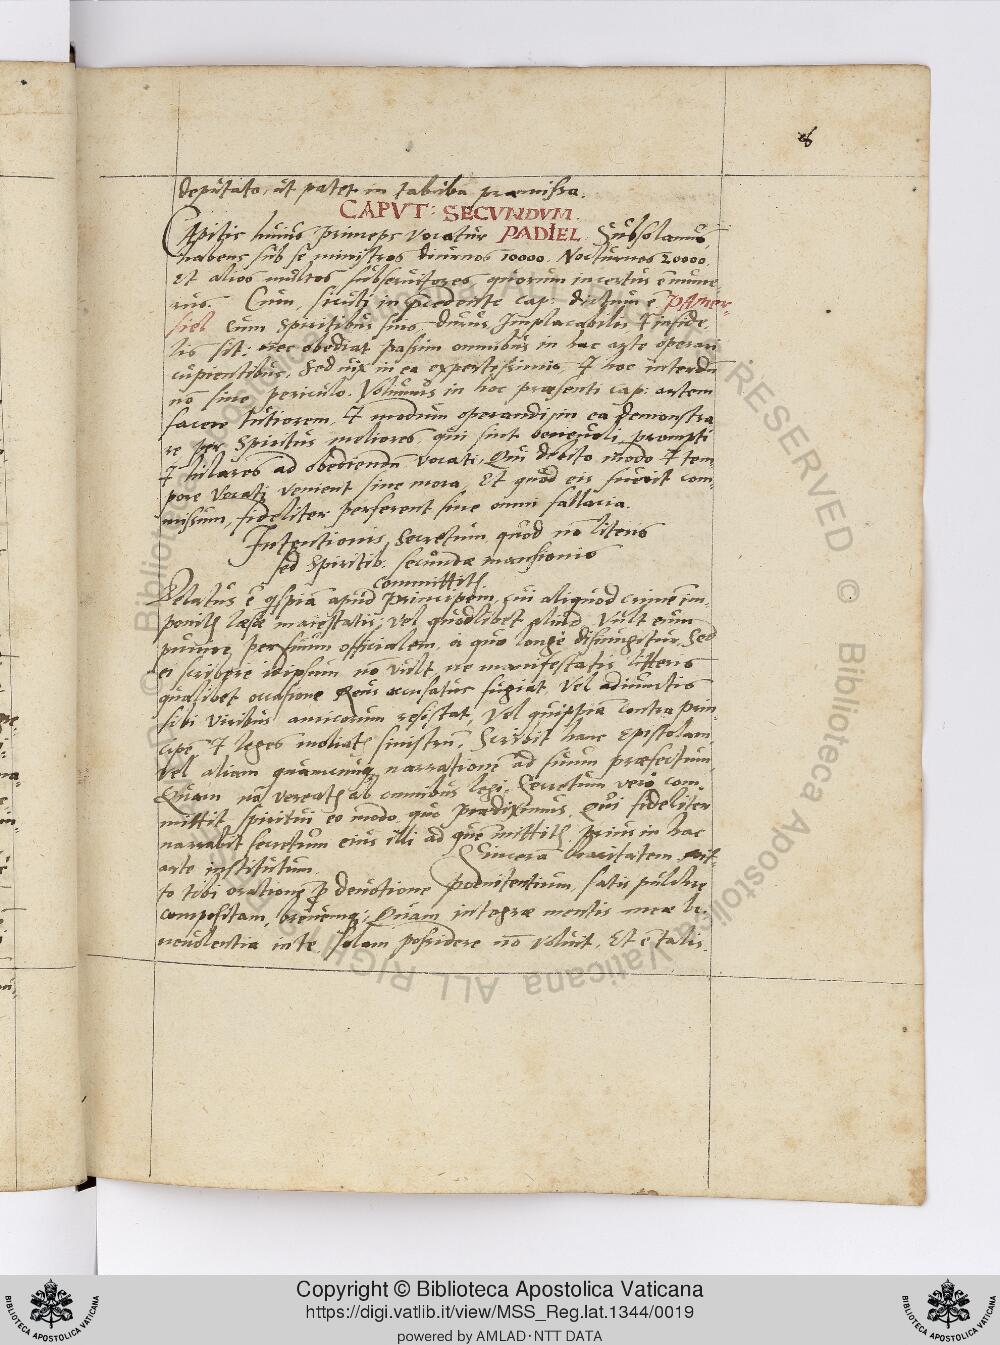 8
deputato, ut patet in tabula præmissa.
CAPVT: SECVNDVM.
Capitis huius princeps vocatur PADIEL Subsolanus
habens sub se ministros diurnos 10000. Nocturnos 20000.
Et alios multos subservitores, quorum incertus ē nume
rus. Cum, sicuti in præcedente cap: dictum ē PAmer-
siel cum spiritibus suis durus, Implacabilis & infide
lis sit: nec obediat passim omnibus in hac arte operari
cupientibus, sed uix in ea expertissimis, & hoc interdū
nō sine periculo. Volumus in hoc præsenti cap: artem
facere tutiorem, & modum operandi in ea demonstra
re per spiritus meliores, qui sint beneuoli, prompti
& hilares ad obediendū vocati, Qui debito modo & tem
pore vocati venient sine mora, Et quod eis fuerit com-
missum, fideliter perferent sine omni fallacia.
Intentionis, secretum, quod nō literis
sed spiritib. secundæ mansionis
committitʳ
Delatus ē qspiā apud principem, cui aliquod crimen im-
ponitʳ læsæ maiestatis, vel quodlibet aliud, Vult eum
punire, per suum officialem, à quo longè disiungitur, Sed
ei scribere idipsum nō vult, ne manifestatis litteris
qualibet occasione Reus accusatus fugiat, Vel adiunctis
sibi viribus amicorum resistat, Vel quippiā contra prin-
cipē & leges moliatʳ sinistrū, Scribit hanc Epistolam
vel aliam quamcunq narrationē ad suum præfectum,
Quam nō vereatʳ ab omnibus legi; Secretum verò com-
mittit spiritui eo modo, quo prædiximus, Qui fideliter
narrabit secretum eius illi ad quē mittitʳ, prius in hac
arte institutum. Sinceram charitatem mit-
to tibi orationē p deuotione poenitentium, satis pulchre
compositam, breuemq; Quam integræ mentis meæ be-
neuolentia in te solam possidere nō voluit. Et ē talis.
Copyright © Biblioteca Apostolica Vaticana
https://digi.vatlib.it/view/MSS_Reg.lat.1344/0019
powered by AMLAD·NTT DATA
BIBLIOTECA APOSTOLICA VATICANA
BIBLIOTECA APOSTOLICA VATICANA
© Biblioteca Apostolica Vaticana ALL RIGHTS RESERVED